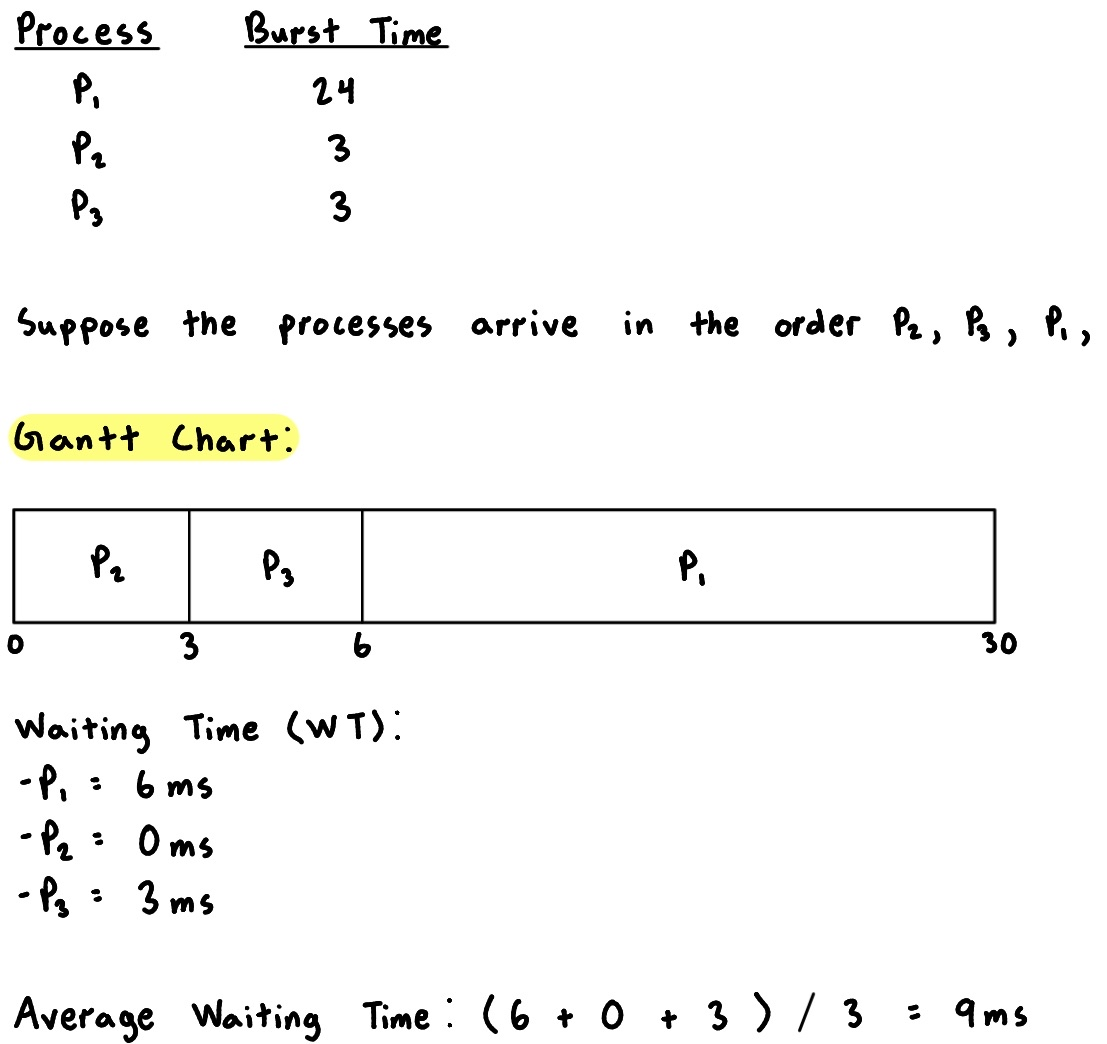 Process Burst Time
P₁ 24
P₂ 3
P₃ 3
Suppose the processes arrive in the order P₂, P₃, P₁,
Gantt Chart:
P₂ P₃ P₁
0 3 6 30
Waiting Time (WT):
-P₁ = 6 ms
-P₂ = 0 ms
-P₃ = 3 ms
Average Waiting Time: (6 + 0 + 3) / 3 = 9ms